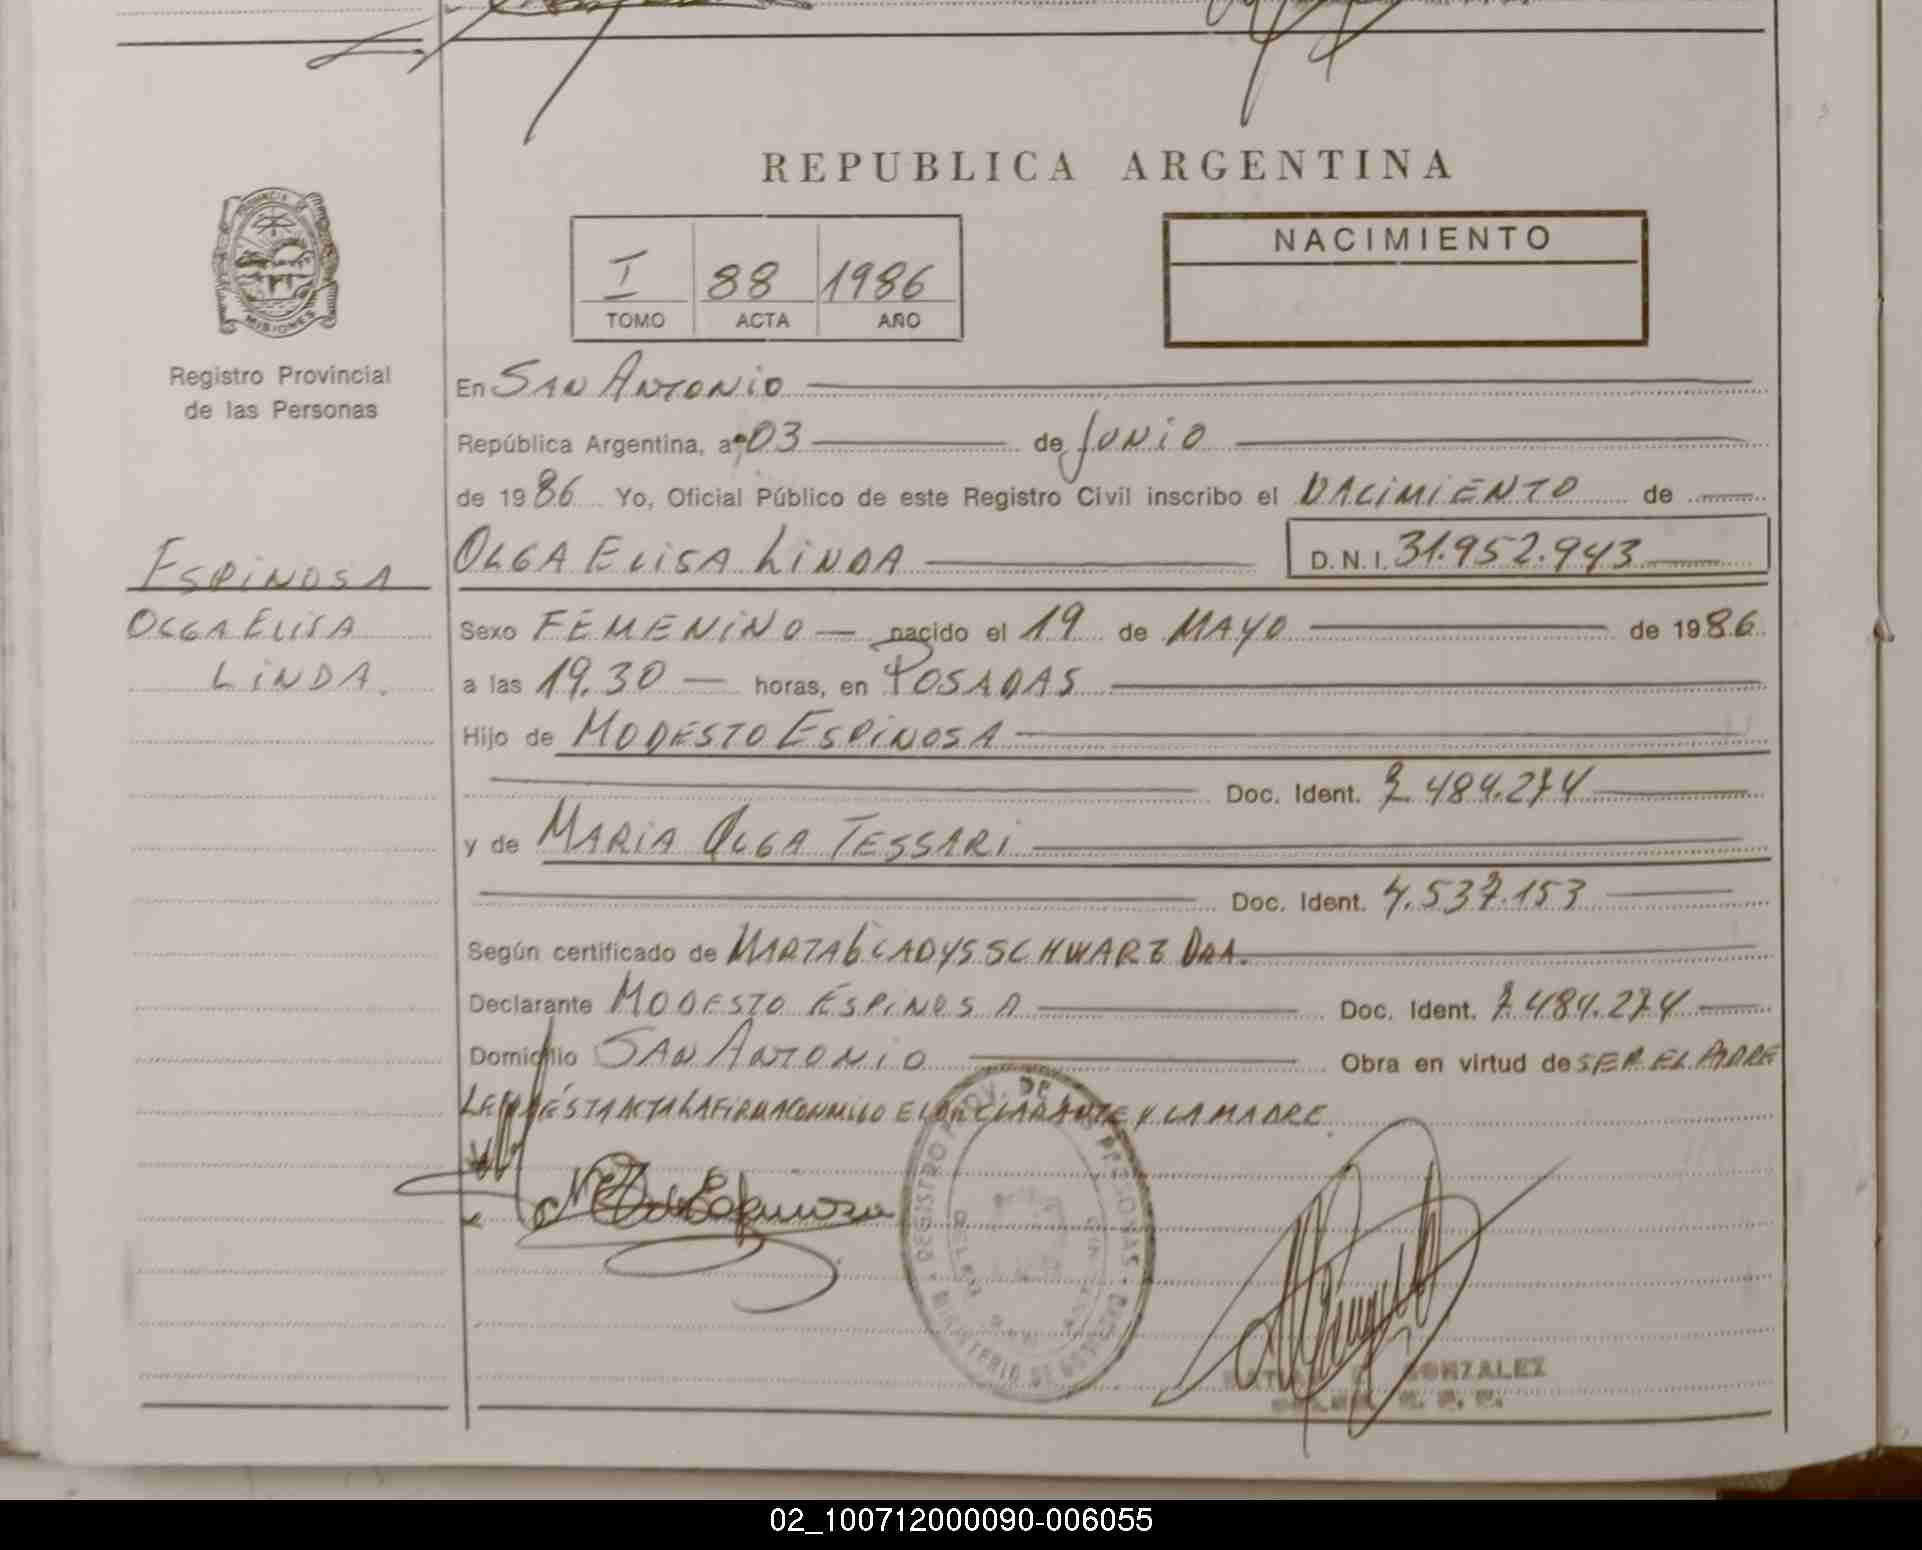 REPUBLICA ARGENTINA
PROVINCIA DE
MISIONES
Registro Provincial
de las Personas
I 88 1986
TOMO ACTA AÑO
NACIMIENTO
En SAN ANTONIO
República Argentina, a 03 de JUNIO
de 1986 Yo, Oficial Público de este Registro Civil inscribo el NACIMIENTO de
OLGA ELISA LINDA D.N.I. 31.952.943
ESPINOSA
OLGA ELISA
LINDA.
Sexo FEMENINO nacido el 19 de MAYO de 1986
a las 19.30 horas, en POSADAS
Hijo de MODESTO ESPINOSA
Doc. Ident. 7.484.274
y de MARIA OLGA TESSARI
Doc. Ident. 4.537.153
Según certificado de MARTA GLADYS SCHWARZ DRA.
Declarante MODESTO ESPINOSA Doc. Ident. 7.484.274
Domicilio SAN ANTONIO Obra en virtud de SER EL PADRE
LEIDA ÉSTA ACTA LA FIRMA CONMIGO EL DECLARANTE Y LA MADRE.
REGISTRO PROV. DE LAS PERSONAS
MINISTERIO DE GOBIERNO
GONZALEZ
02_100712000090-006055